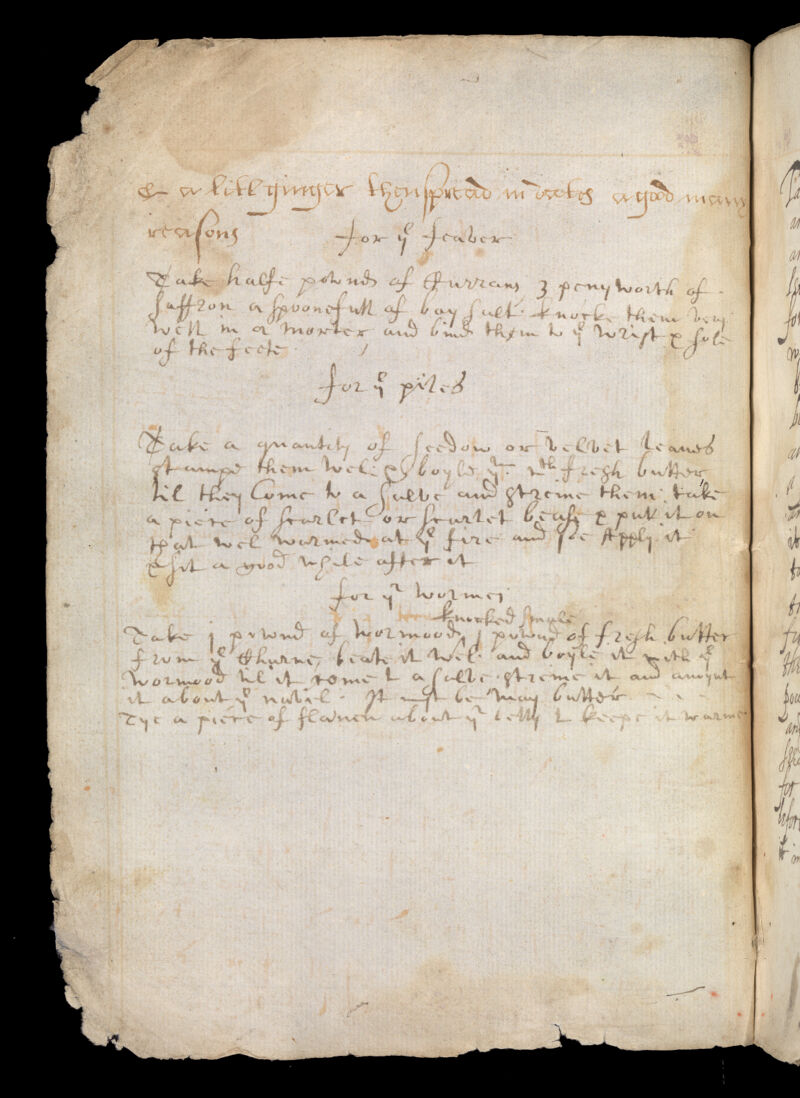 & a litl ginger then spread in dates a good many
reasons
for yͤ feaver
Take halfe pownd of Currans 3 penyworth of
saffron a spoonefull of bay salt knocke them very
well in a morter and bind them to yͤ wrist & sole
of the feete
for yͤ piles
Take a quantity of or velvet leaves
stampe them well & boyle yᵐ wᵗʰ fresh butter
til they Come to a salve and streine them take
a piece of scarlet or scarlet & put it on
that wel warmed at yͤ fire and Apply it
& sit a good while after it
for yͤ wormes
knocked smale
Take j pownd of wormood, j pownd of fresh butter
from yͤ Churne, beate it wel and boyle it with yͤ
wormood til it come t a salve streine it and anoynt
it about yͤ navil. It must be may butter
Tye a piece of flanen about yͤ belly & keepe it warme